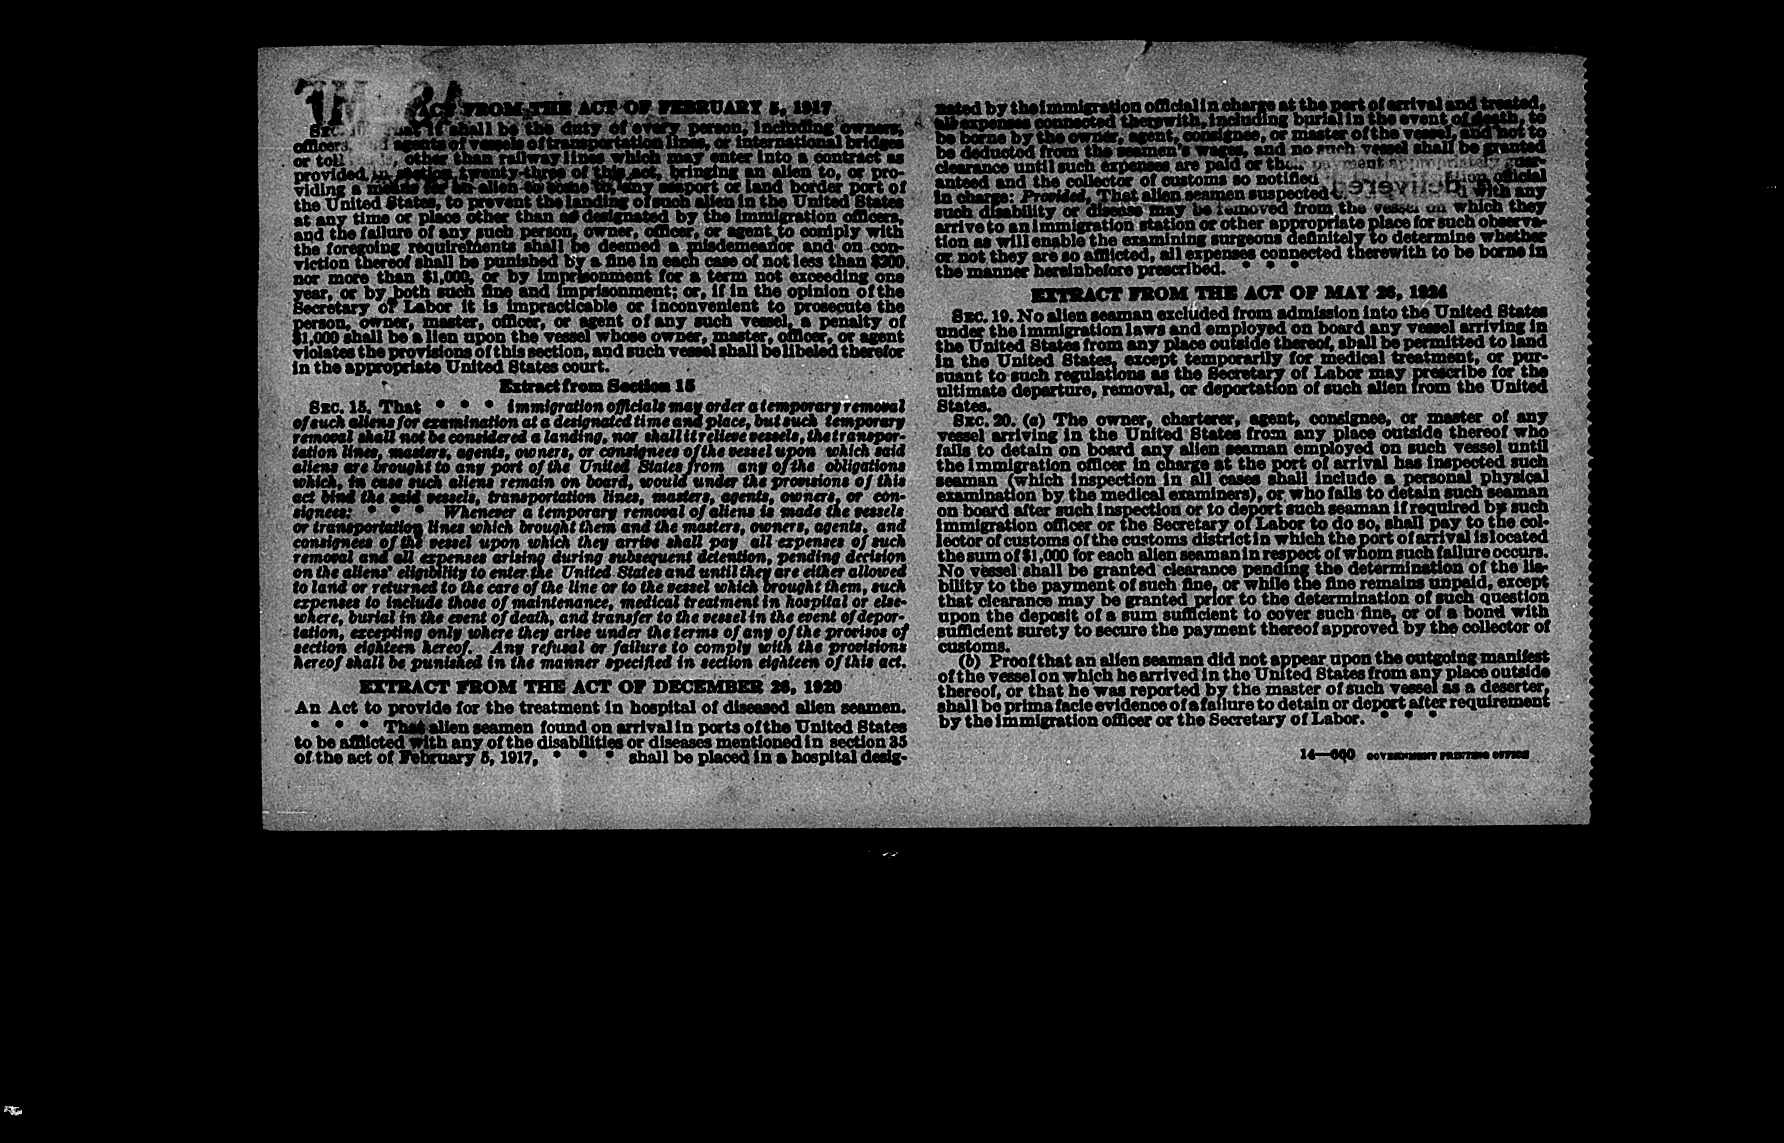 ACT FROM THE ACT OF FEBRUARY 5, 1917
SEC. 10. That it shall be the duty of every person, including owners,
officers, and agents of vessels of transportation lines, or international bridges
or toll other than railway lines which may enter into a contract as
provided in section twenty-three of this act, bringing an alien to, or pro-
viding a means for an alien to come to, any seaport or land border port of
the United States, to prevent the landing of such alien in the United States
at any time or place other than as designated by the immigration officers,
and the failure of any such person, owner, officer, or agent to comply with
the foregoing requirements shall be deemed a misdemeanor and on con-
viction thereof shall be punished by a fine in each case of not less than $200
nor more than $1,000, or by imprisonment for a term not exceeding one
year, or by both such fine and imprisonment; or, if in the opinion of the
Secretary of Labor it is impracticable or inconvenient to prosecute the
person, owner, master, officer, or agent of any such vessel, a penalty of
$1,000 shall be a lien upon the vessel whose owner, master, officer, or agent
violates the provisions of this section, and such vessel shall be libeled therefor
in the appropriate United States court.
Extract from Section 15
SEC. 15. That * * * immigration officials may order a temporary removal
of such aliens for examination at a designated time and place, but such temporary
removal shall not be considered a landing, nor shall it relieve vessels, the transpor-
tation lines, masters, agents, owners, or consignees of the vessel upon which said
aliens are brought to any port of the United States from any of the obligations
which, in case such aliens remain on board, would under the provisions of this
act bind the said vessels, transportation lines, masters, agents, owners, or con-
signees: * * * Whenever a temporary removal of aliens is made the vessels
or transportation lines which brought them and the masters, owners, agents, and
consignees of the vessel upon which they arrive shall pay all expenses of such
removal and all expenses arising during subsequent detention, pending decision
on the aliens' eligibility to enter the United States and until they are either allowed
to land or returned to the care of the line or to the vessel which brought them, such
expenses to include those of maintenance, medical treatment in hospital or else-
where, burial in the event of death, and transfer to the vessel in the event of depor-
tation, excepting only where they arise under the terms of any of the provisos of
section eighteen hereof. Any refusal or failure to comply with the provisions
hereof shall be punished in the manner specified in section eighteen of this act.
EXTRACT FROM THE ACT OF DECEMBER 26, 1920
An Act to provide for the treatment in hospital of diseased alien seamen.
* * * That alien seamen found on arrival in ports of the United States
to be afflicted with any of the disabilities or diseases mentioned in section 35
of the act of February 5, 1917, * * * shall be placed in a hospital desig-
nated by the immigration official in charge at the port of arrival and treated,
all expenses connected therewith, including burial in the event of death, to
be borne by the owner, agent, consignee, or master of the vessel, and not to
be deducted from the seamen's wages, and no such vessel shall be granted
clearance until such expenses are paid or their payment appropriately guar-
anteed and the collector of customs so notified official
in charge: Provided, That alien seamen suspected with any
such disability or disease may be removed from the vessel on which they
arrive to an immigration station or other appropriate place for such observa-
tion as will enable the examining surgeons definitely to determine whether
or not they are so afflicted, all expenses connected therewith to be borne in
the manner hereinbefore prescribed. * * *
EXTRACT FROM THE ACT OF MAY 26, 1924
SEC. 19. No alien seaman excluded from admission into the United States
under the immigration laws and employed on board any vessel arriving in
the United States from any place outside thereof, shall be permitted to land
in the United States, except temporarily for medical treatment, or pur-
suant to such regulations as the Secretary of Labor may prescribe for the
ultimate departure, removal, or deportation of such alien from the United
States.
SEC. 20. (a) The owner, charterer, agent, consignee, or master of any
vessel arriving in the United States from any place outside thereof who
fails to detain on board any alien seaman employed on such vessel until
the immigration officer in charge at the port of arrival has inspected such
seaman (which inspection in all cases shall include a personal physical
examination by the medical examiners), or who fails to detain such seaman
on board after such inspection or to deport such seaman if required by such
immigration officer or the Secretary of Labor to do so, shall pay to the col-
lector of customs of the customs district in which the port of arrival is located
the sum of $1,000 for each alien seaman in respect of whom such failure occurs.
No vessel shall be granted clearance pending the determination of the lia-
bility to the payment of such fine, or while the fine remains unpaid, except
that clearance may be granted prior to the determination of such question
upon the deposit of a sum sufficient to cover such fine, or of a bond with
sufficient surety to secure the payment thereof approved by the collector of
customs.
(b) Proof that an alien seaman did not appear upon the outgoing manifest
of the vessel on which he arrived in the United States from any place outside
thereof, or that he was reported by the master of such vessel as a deserter,
shall be prima facie evidence of a failure to detain or deport after requirement
by the immigration officer or the Secretary of Labor. * * *
14—600 GOVERNMENT PRINTING OFFICE